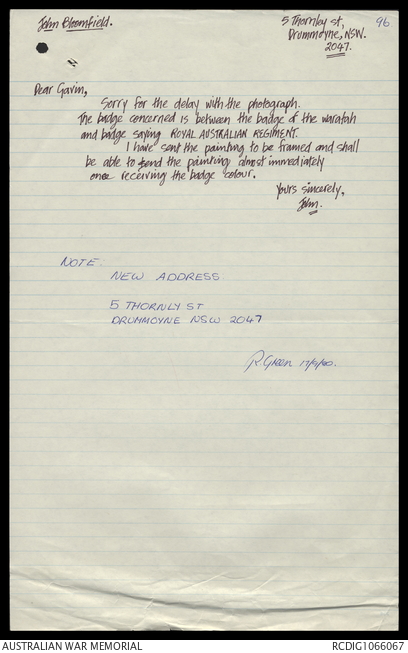 John Bloomfield.
5 Thornley st,
Drummoyne, NSW.
2047.
96
Dear Gavin,
Sorry for the delay with the photograph.
The badge concerned is between the badge of the waratah
and badge saying ROYAL AUSTRALIAN REGIMENT.
I have sent the painting to be framed and shall
be able to send the painting almost immediately
once receiving the badge colour.
Yours sincerely,
John.
NOTE.
NEW ADDRESS:
5 THORNLY ST
DRUMMOYNE NSW 2047
R. Green 17/9/90.
AUSTRALIAN WAR MEMORIAL
RCDIG1066067